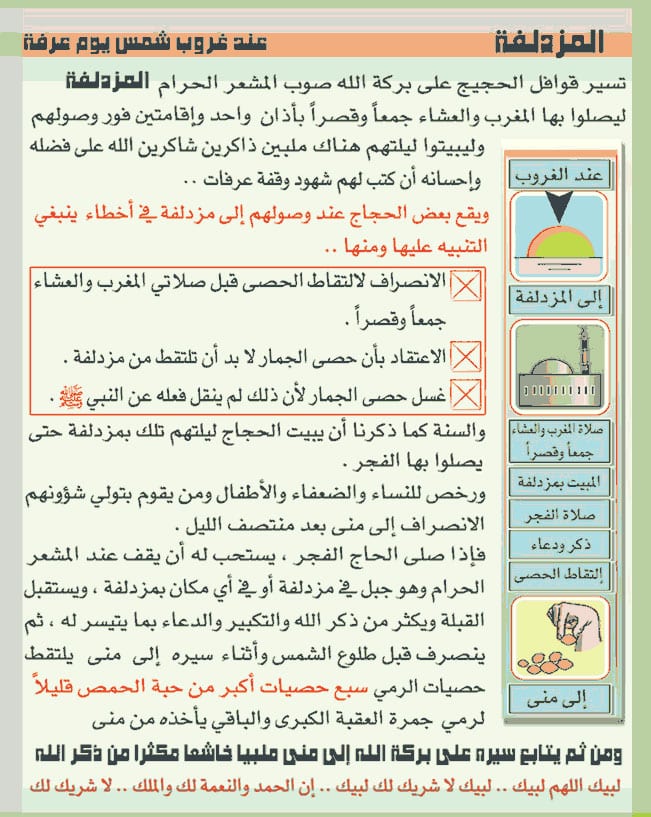 المزدلفة
عند غروب شمس يوم عرفة
تسير قوافل الحجيج على بركة الله صوب المشعر الحرام المزدلفة
ليصلوا بها المغرب والعشاء جمعاً وقصراً بأذان واحد وإقامتين فور وصولهم
وليبيتوا ليلتهم هناك ملبين ذاكرين شاكرين الله على فضله
وإحسانه أن كتب لهم شهود وقفة عرفات ..
ويقع بعض الحجاج عند وصولهم إلى مزدلفة في أخطاء ينبغي
التنبيه عليها ومنها ..
الانصراف لالتقاط الحصى قبل صلاتي المغرب والعشاء
جمعاً وقصراً .
الاعتقاد بأن حصى الجمار لا بد أن تلتقط من مزدلفة .
غسل حصى الجمار لأن ذلك لم ينقل فعله عن النبي ﷺ .
والسنة كما ذكرنا أن يبيت الحجاج ليلتهم تلك بمزدلفة حتى
يصلوا بها الفجر .
ورخص للنساء والضعفاء والأطفال ومن يقوم بتولي شؤونهم
الانصراف إلى منى بعد منتصف الليل .
فإذا صلى الحاج الفجر ، يستحب له أن يقف عند المشعر
الحرام وهو جبل في مزدلفة أو في أي مكان بمزدلفة ، ويستقبل
القبلة ويكثر من ذكر الله والتكبير والدعاء بما يتيسر له ، ثم
ينصرف قبل طلوع الشمس وأثناء سيره إلى منى يلتقط
حصيات الرمي سبع حصيات أكبر من حبة الحمص قليلاً
لرمي جمرة العقبة الكبرى والباقي يأخذه من منى
عند الغروب
إلى المزدلفة
صلاة المغرب والعشاء
جمعاً وقصراً
المبيت بمزدلفة
صلاة الفجر
ذكر ودعاء
إلتقاط الحصى
إلى منى
ومن ثم يتابع سيره على بركة الله إلى منى ملبيا خاشعا مكثرا من ذكر الله
لبيك اللهم لبيك .. لبيك لا شريك لك لبيك .. إن الحمد والنعمة لك والملك .. لا شريك لك